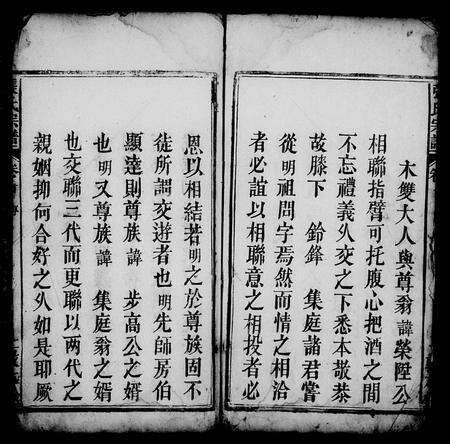 木雙大人與尊翁諱榮陞公
相聯指臂可托腹心把酒之間
不忘禮義久交之下悉本敬恭
故膝下 鈴鋒 集庭諸君嘗
從明祖問字焉然而情之相洽
者必誼以相聯意之相投者必
恩以相結若明之於尊族固不
徒所謂交遊者也明先師房伯
顯達則尊族諱 步高公之婿
也明又尊族諱 集庭翁之婿
也交聯三代而更聯以兩代之
親姻抑何合好之久如是耶厥
氏宗譜